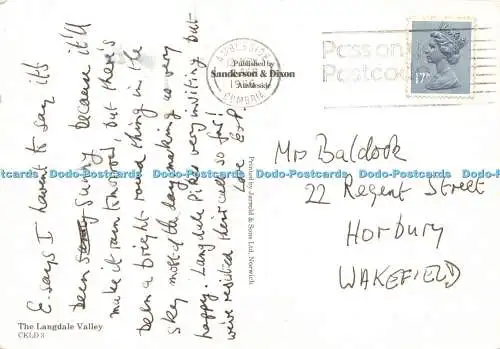 E. says I haven't to say it's
been sunny because it'll
make it rain tomorrow, but there's
been a bright round thing in the
sky most of the day making us very
happy. Langdale Pikes very inviting but
we've resisted their call so far!
Love E+P.
The Langdale Valley
CKLD 3
Published by
Sanderson & Dixon
Ambleside
Produced by Jarrold & Sons Ltd, Norwich
AMBLESIDE
1986
CUMBRIA
Pass on
Postcod
17P
Mrs Baldock
22 Regent Street
Horbury
WAKEFIELD
Dodo-Postcards Dodo-Postcards Dodo-Postcards Dodo-Postcards Dodo-Postcards Dodo-Postcards